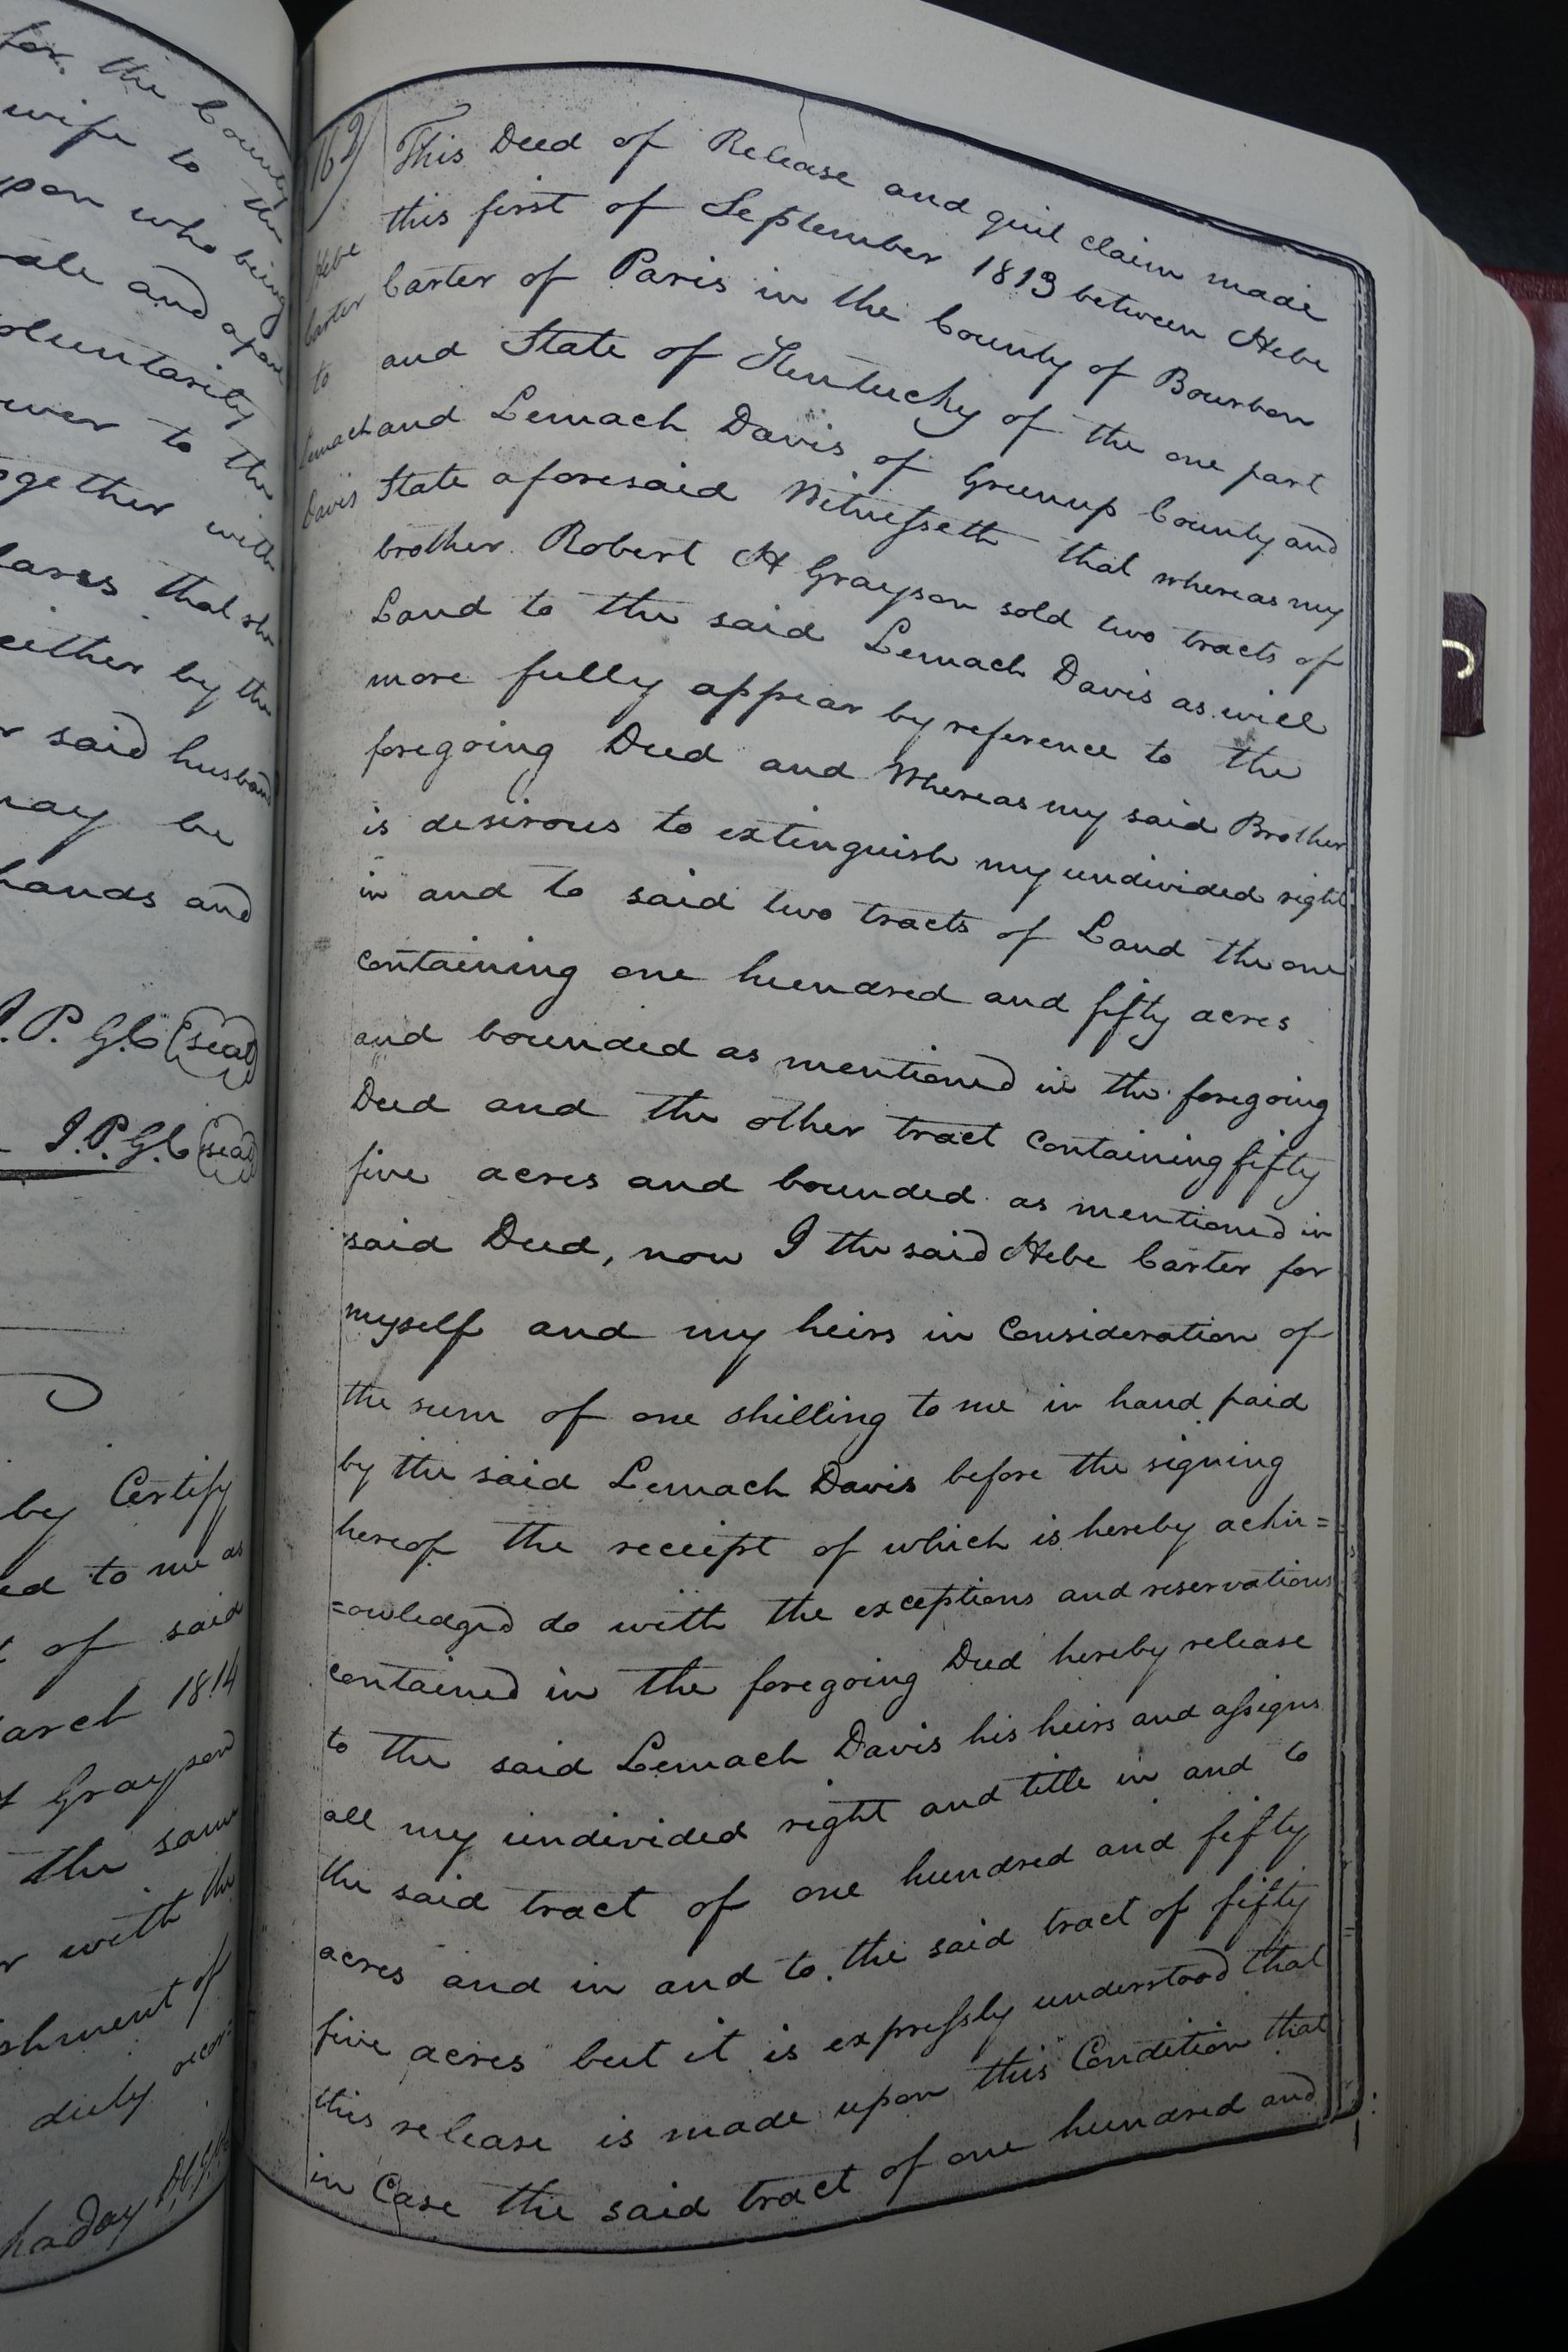 for, the County
wife to the
upon who being
and apart
voluntarily
to the
together with
that she
either by the
said husband
may be
hands and
J.P. G.C (seal)
J.P.G.C (seal)
by Certify
ed to me as
of said
March 1814
Grayson
the same
with the
duly recor=
162)
Hebe
Carter
to
Lemach
Davis
This Deed of Release and quit claim made
this first of September 1813 between Hebe
Carter of Paris in the County of Bourbon
and State of Kentucky of the one part
and Lemach Davis of Greenup County and
State aforesaid Witnesseth that whereas my
brother Robert H Grayson sold two tracts of
Land to the said Lemach Davis as will
more fully appear by reference to the
foregoing Deed and Whereas my said Brother
is desirous to extinguish my undivided right
in and to said two tracts of Land the one
containing one hundred and fifty acres
and bounded as mentioned in the foregoing
Deed and the other tract Containing fifty
five acres and bounded as mentioned in
said Deed, now I the said Hebe Carter for
myself and my heirs in Consideration of
the sum of one shilling to me in hand paid
by the said Lemach Davis before the signing
hereof the receipt of which is hereby ackn=
=owledged do with the exceptions and reservations
contained in the foregoing Deed hereby release
to the said Lemach Davis his heirs and assigns
all my undivided right and title in and to
the said tract of one hundred and fifty
acres and in and to the said tract of fifty
five acres but it is expressly understood that
this release is made upon this Condition that
in Case the said tract of one hundred and